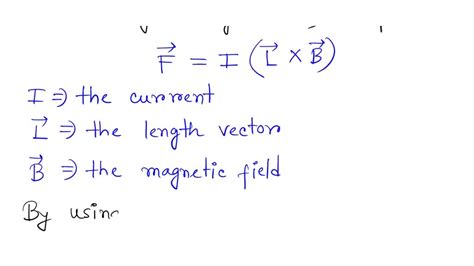 F⃗ = I (L⃗ × B⃗)
I ⇒ the current
L⃗ ⇒ the length vector
B⃗ ⇒ the magnetic field
By using